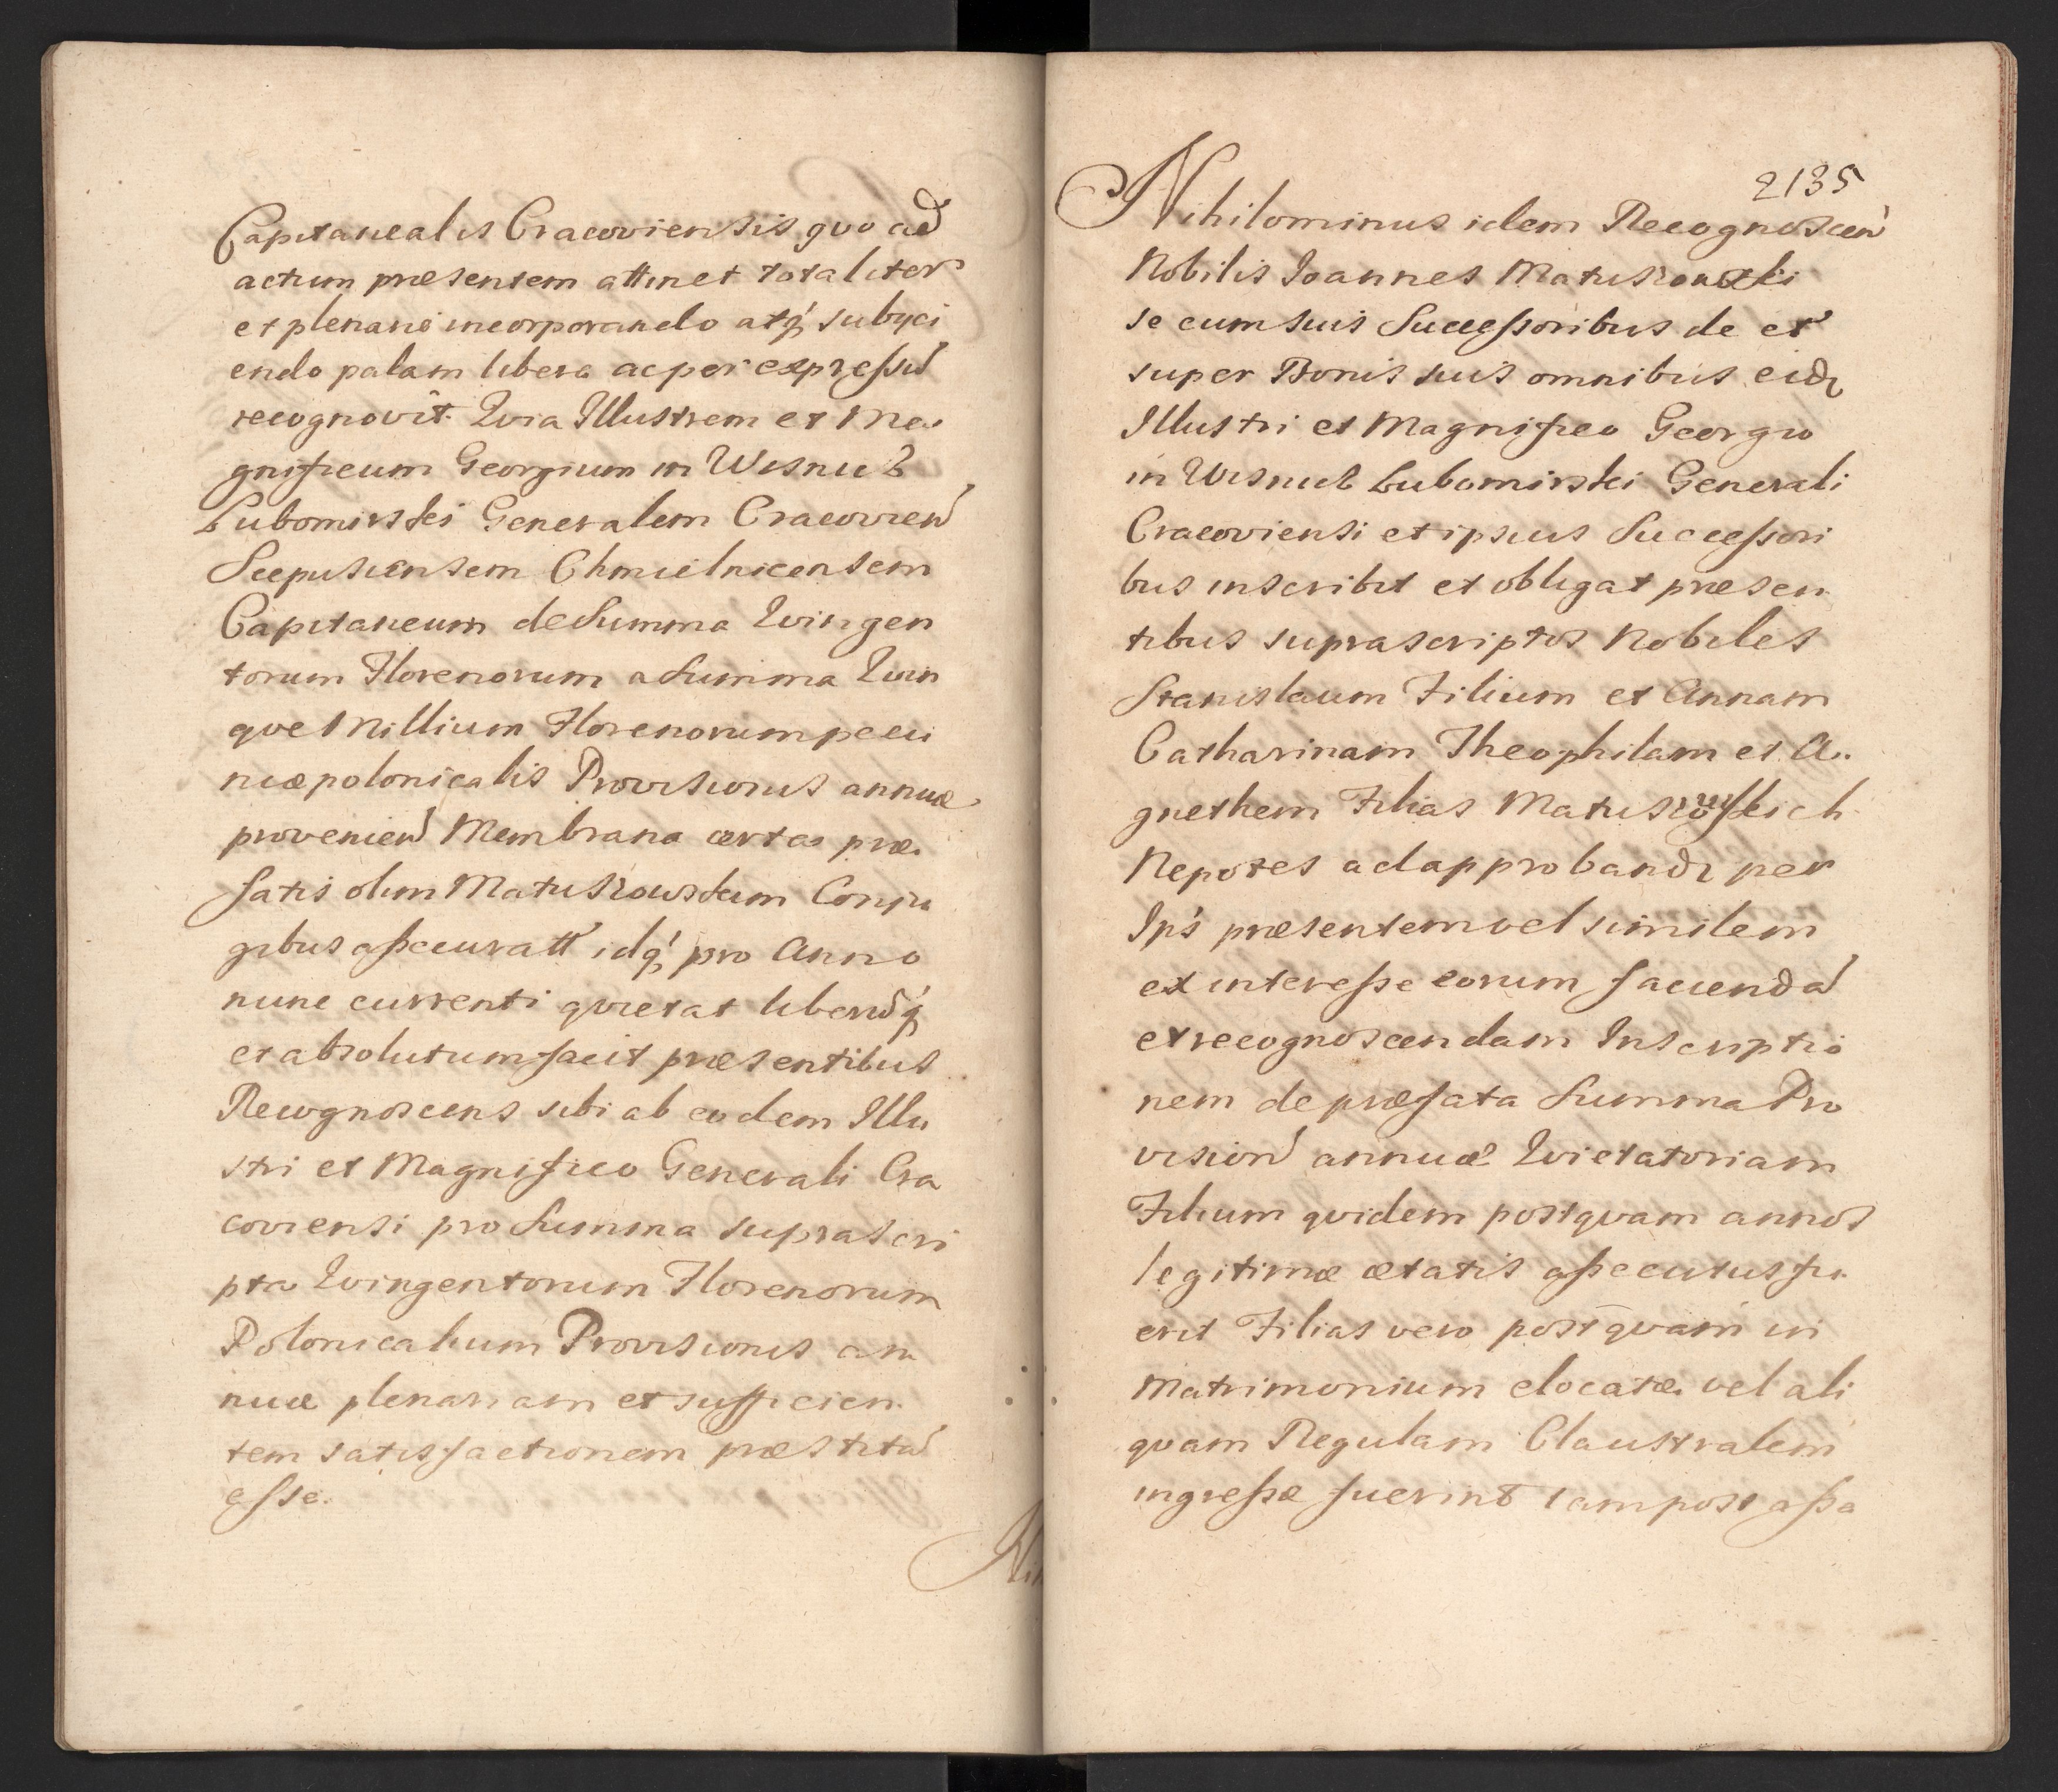 Capitanealis Cracoviensis quo ad
actum præsentem attinet totaliter
et plenarie incorporando atq́ subyci
endo palam libere ac per expressū
recognovit Quia Illustrem et Ma
gnificum Georgium in Wisnicz
Lubomirski Generalem Cracovien̄
Scepusiensem Chmielnicensem
Capitaneum de Summa Quingen
torum Florenorum a Summa Quin
que Millium Florenorum pecu
niæ polonicalis Provisionis annuæ
provenien̄ Membrana certas præ
fatis olim Matusrowskim Conju
gibus assecuratt idq́ pro Anno
nunc currenti quietat liberūq́
et absolutum facit præsentibus
Recognoscens sibi ab eodem Illu
stri et Magnifico Generali Cra
coviensi pro Summa suprascri
pta Quingentorum Florenorum
Polonicalium Provisionis an
nuæ plenariam et sufficien
tem satisfactionem præstitā
esse.
Nih
2135
Nihilominus idem Recognoscen̄
Nobilis Joannes Matusrowski
se cum suis Successoribus de et
super Bonis suis omnibus eidē
Illustri et Magnifico Georgio
in Wisnicz Lubomirski Generali
Cracoviensi et ipsius Successori
bus inscribit et obligat præsen
tibus suprascriptos Nobiles
Stanislaum Filium et Annam
Catharinam Theophilam et A
gnethem Filias Matusrowskich
Nepotes ad approband per
Ips̄ præsentem vel similem
ex interesse eorum faciendā
et recognoscendam Inscriptio
nem de præfata Summa Pro
vision̄ annuæ Quietatoriam
Filium quidem postquam annos
legitimæ ætatis assecutus fu
erit Filias vero postquam in
Matrimonium elocatæ vel ali
quam Regulam Claustralem
ingressæ fuerint tam post assa